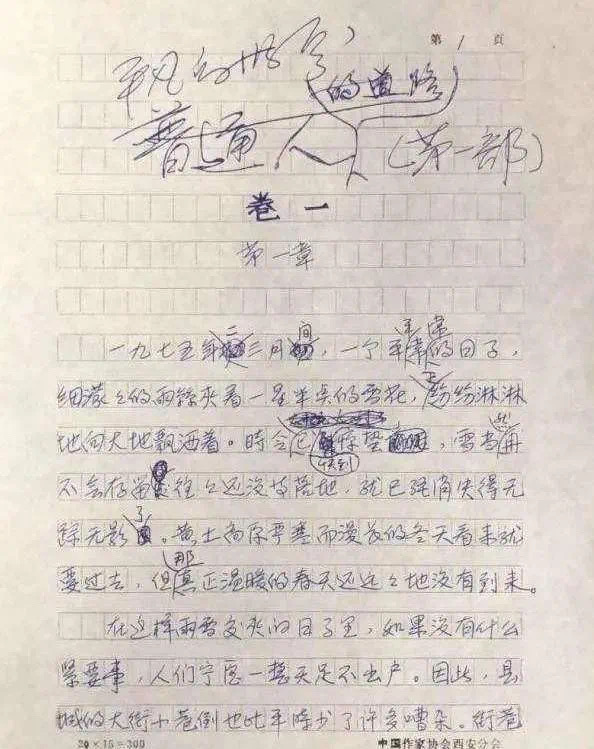 第 1 页
平凡的世界
的道路
普通人
(第一部)
卷一
第一章
一九七五年二三月间,一个平平常常的日子,
细濛々的雨丝夹着一星半点的雪花,正纷纷淋淋
地向大地飘洒着。時令已快到惊蛰,雪当然再
不会存留,往々还没等落地,就已经消失得无
踪无影了。黄土高原严寒而漫长的冬天看来就
要过去,但那真正温暖的春天还远々地没有到来。
在这样雨雪交夹的日子里,如果没有什么
紧要事,人们宁愿一整天足不出户。因此,县
城的大街小巷倒也比平時少了许多嘈杂。街巷
20×15=300
中国作家协会西安分会